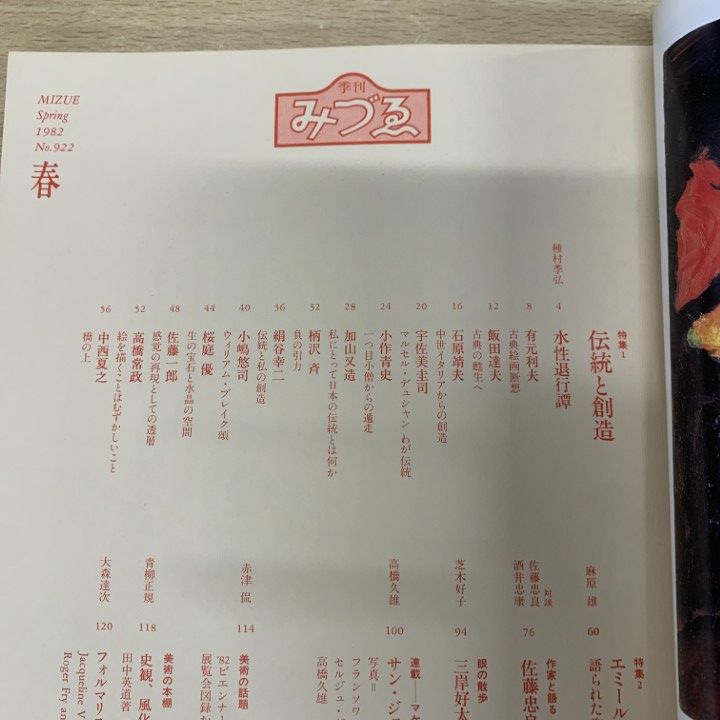 MIZUE
Spring
1982
No.922
春
季刊
みづゑ
特集1
伝統と創造
種村季弘
4
水性退行譚
8
有元利夫
古典絵画断想
12
飯田達夫
古典の雌生へ
16
石原靖夫
中世イタリアからの創造
20
宇佐美圭司
マルセル・デュシャン わが伝統
24
小作青史
一つ目小僧からの遁走
28
加山又造
私にとって日本の伝統とは何か
32
柄沢 斉
負の引力
36
絹谷幸二
伝統と私の創造
40
小嶋悠司
ウィリアム・ブレイク頌
44
桜庭 優
生の宝石と水晶の空間
48
佐藤一郎
感覚の再現としての透層
52
高橋常政
絵を描くことはむずかしいこと
56
中西夏之
橋の上
特集2
麻原 雄
60
エミール
語られた
作家と語る
対談
佐藤忠良
酒井忠康
76
佐藤忠
眼の散歩
芝木好子
94
三岸好太
連載
高橋久雄
100
サン・ジ
写真=
フランソワ
セルジュ・
高橋久雄
美術の話題
赤津 侃
114
'82ビエンナー
展覧会図録か
美術の本棚
青柳正規
118
史観、風化
田中英道著
大森達次
120
フォルマリス
Jacqueline V
Roger Fry an